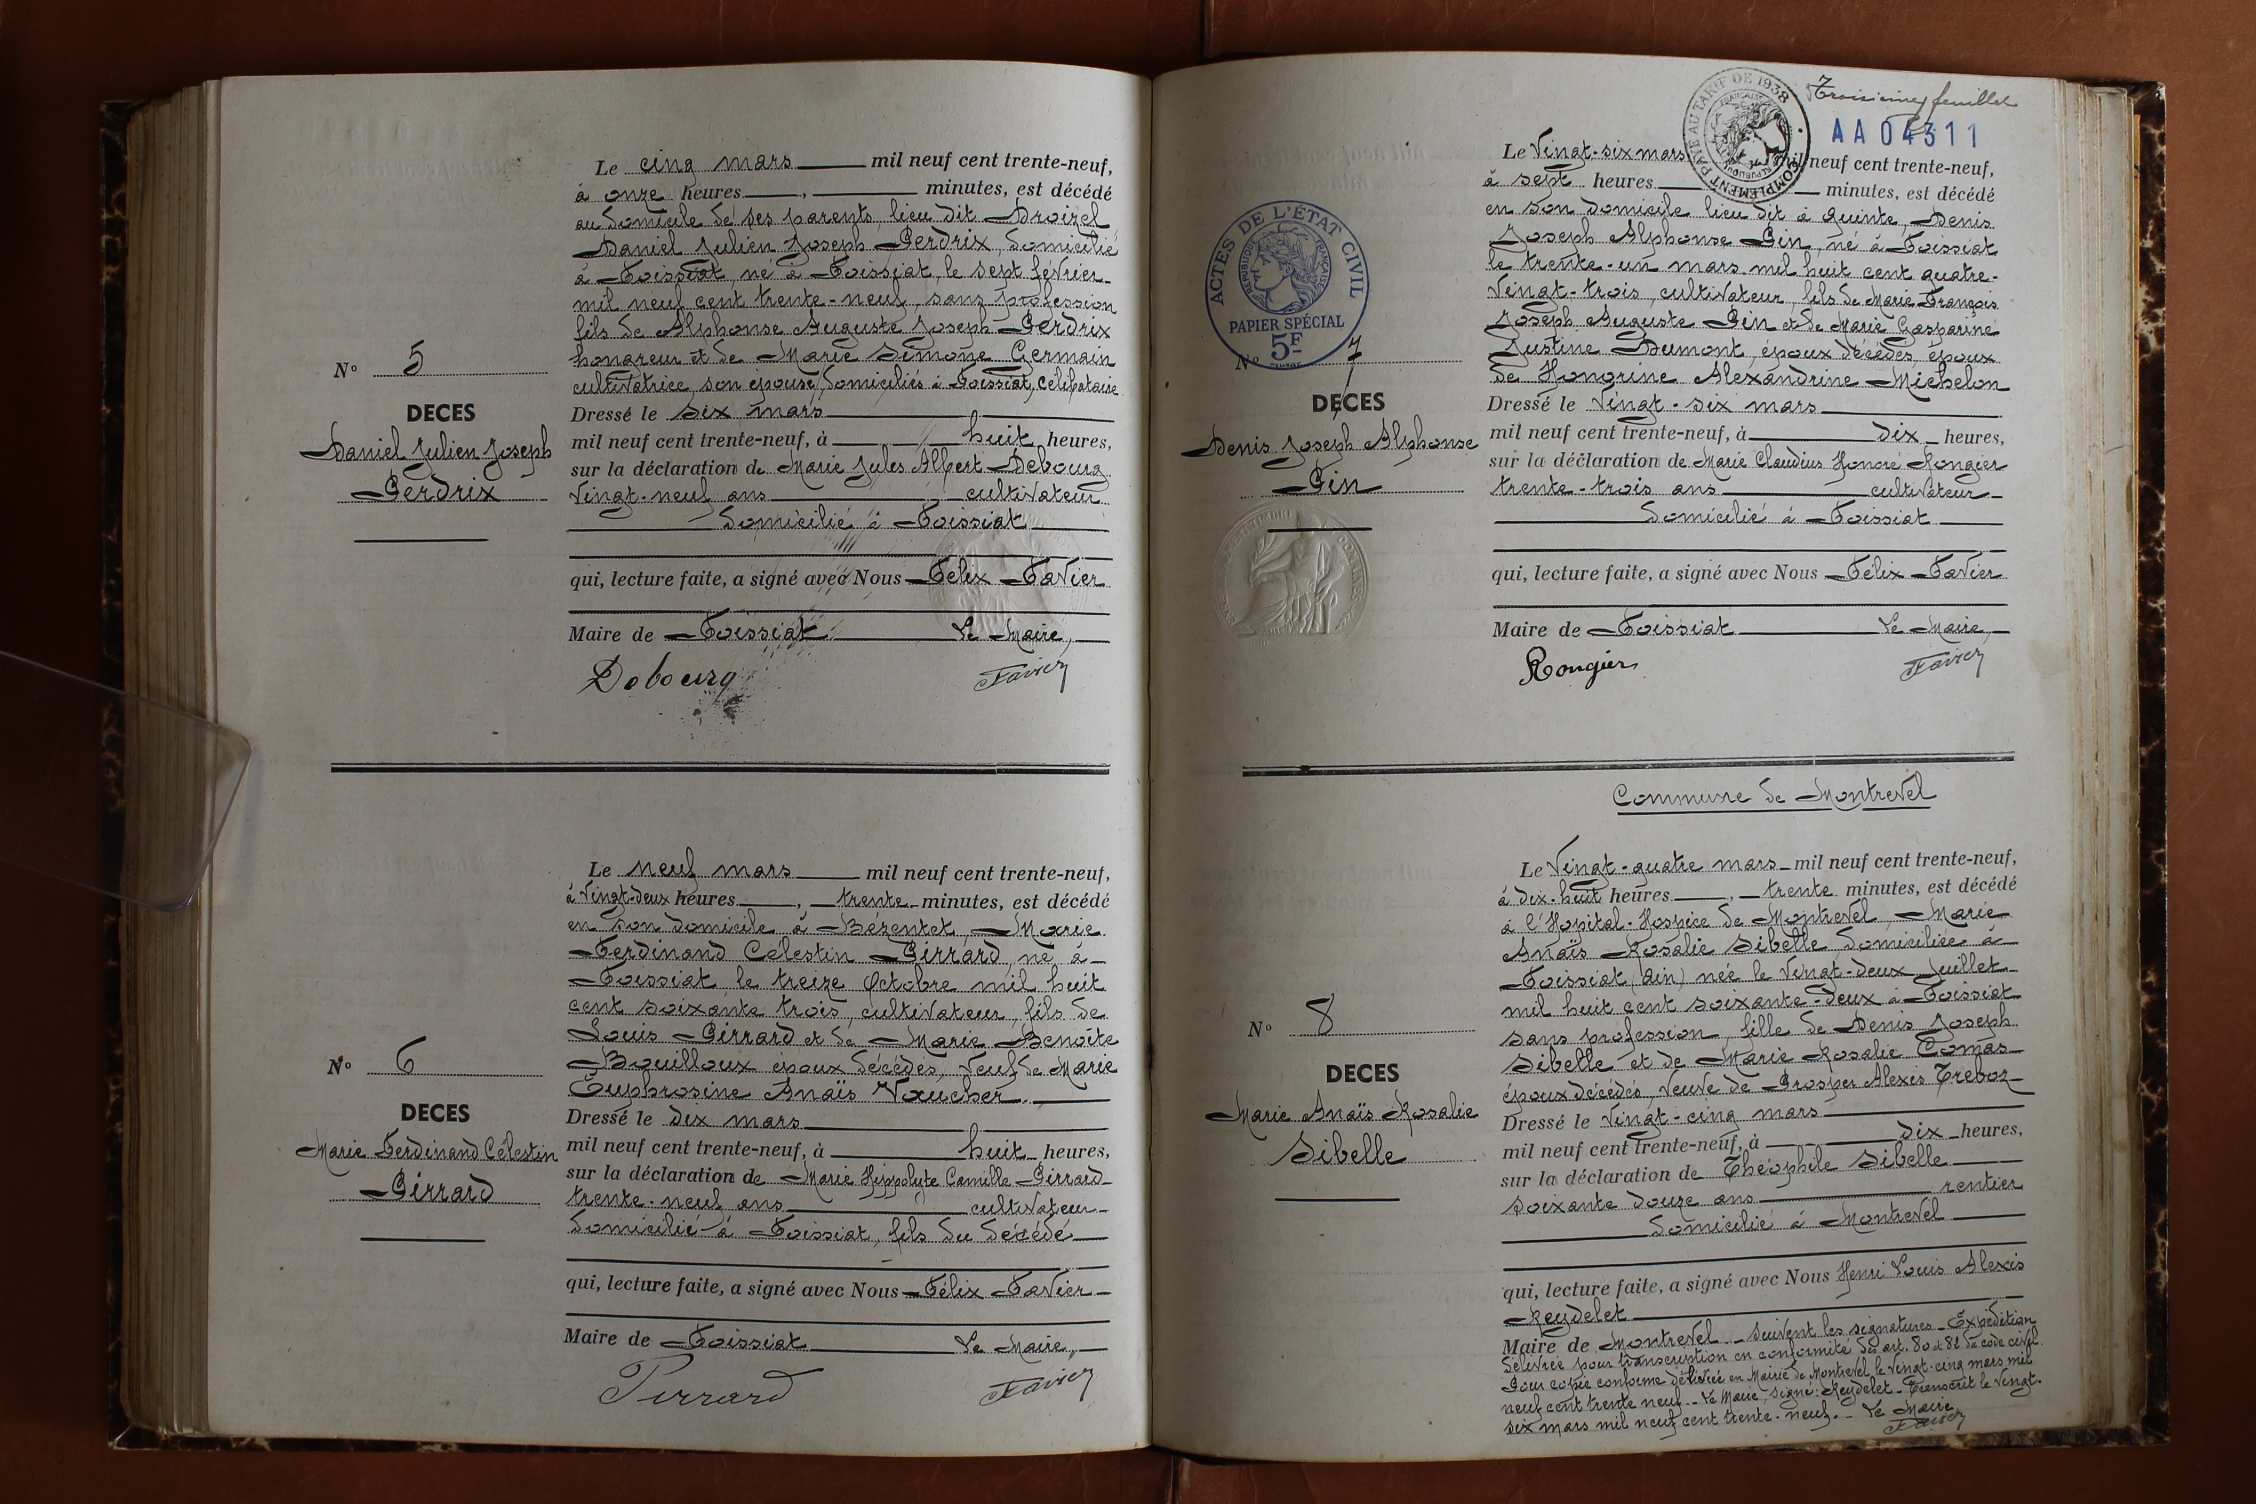 Le cinq mars mil neuf cent trente-neuf,
à onze heures , minutes, est décédé
au domicile de ses parents, lieu dit Droizel
Daniel Julien Joseph Perdrix, domicilié
à Foissiat, né à Foissiat, le sept février
mil neuf cent trente-neuf, sans profession
fils de Alphonse Auguste Joseph Perdrix
hongreur et de Marie Simone Germain
cultivatrice, son épouse, domiciliés à Foissiat, célibataire
Nº 5
DECES
Daniel Julien Joseph
Perdrix
Dressé le six mars
mil neuf cent trente-neuf, à huit heures,
sur la déclaration de Marie Jules Albert Debourg
vingt-neuf ans cultivateur
domicilié à Foissiat
qui, lecture faite, a signé avec Nous Félix Favier
Maire de Foissiat Le Maire,
Debourg Favier
Le neuf mars mil neuf cent trente-neuf,
à vingt-deux heures , trente minutes, est décédé
en son domicile à Bézentet, Marie
Ferdinand Célestin Pirrard, né à
Foissiat le treize Octobre mil huit
cent soixante trois, cultivateur, fils de
Louis Pirrard et de Marie Benoîte
Bouilloux époux décédés, veuf de Marie
Euphrosine Anaïs Vaucher.
Nº 6
DECES
Marie Ferdinand Célestin
Pirrard
Dressé le dix mars
mil neuf cent trente-neuf, à huit heures,
sur la déclaration de Marie Hippolyte Camille Pirrard
trente-neuf ans cultivateur
domicilié à Foissiat, fils du décédé
qui, lecture faite, a signé avec Nous Félix Favier
Maire de Foissiat Le Maire,
Pirrard Favier
Troisième feuillet
COMPLÉMENT PAYÉ AU TARIF DE 1938
RÉPUBLIQUE FRANÇAISE
AA04311
Le Vingt-six mars mil neuf cent trente-neuf,
à sept heures minutes, est décédé
en son domicile lieu dit à Quinte, Denis
Joseph Alphonse Pin, né à Foissiat
le trente-un mars mil huit cent quatre-
vingt-trois, cultivateur, fils de Marie François
Joseph Auguste Pin et de Marie Gasparine
Justine Dumont, époux décédés, époux
de Honorine Alexandrine Michelon
ACTES DE L'ÉTAT CIVIL
RÉPUBLIQUE FRANÇAISE
PAPIER SPÉCIAL
5F
Nº 7
DECES
Denis Joseph Alphonse
Pin
Dressé le vingt-six mars
mil neuf cent trente-neuf, à dix heures,
sur la déclaration de Marie Claudius Honoré Rongier
trente-trois ans cultivateur
domicilié à Foissiat
qui, lecture faite, a signé avec Nous Félix Favier
Maire de Foissiat Le Maire,
Rongier Favier
Commune de Montrevel
Le Vingt-quatre mars mil neuf cent trente-neuf,
à dix-huit heures , trente minutes, est décédé
à l'Hopital-Hospice de Montrevel, Marie
Anaïs Rosalie Sibelle domiciliée à
Foissiat (Ain) née le vingt-deux juillet
mil huit cent soixante-deux à Foissiat
sans profession, fille de Denis Joseph
Sibelle et de Marie Rosalie Comas
époux décédés, veuve de Prosper Alexis Treboz
Nº 8
DECES
Marie Anaïs Rosalie
Sibelle
Dressé le vingt-cinq mars
mil neuf cent trente-neuf, à dix heures,
sur la déclaration de Théophile Sibelle
soixante douze ans rentier
domicilié à Montrevel
qui, lecture faite, a signé avec Nous Henri Louis Alexis
Reydelet
Maire de Montrevel. - suivent les signatures - Expédition
délivrée pour transcription en conformité des art. 80 et 82 du code civil.
Pour copie conforme délivrée en Mairie de Montrevel le vingt-cinq mars mil
neuf cent trente neuf. - Le Maire, signé: Reydelet - Transcrit le vingt-
six mars mil neuf cent trente-neuf. - Le Maire
Favier